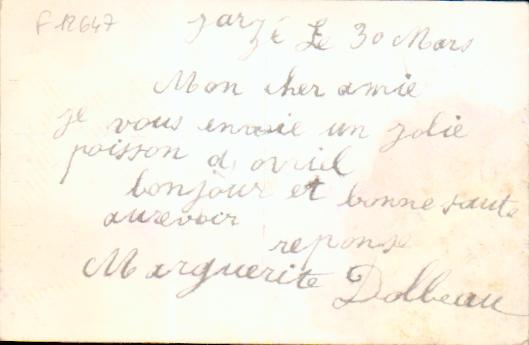 F 12647
Jarzé Le 30 Mars
Mon cher amie
je vous envoie un jolie
poisson d'avril
bonjour et bonne sante
aurevoir
reponse
Marguerite Dolbeau